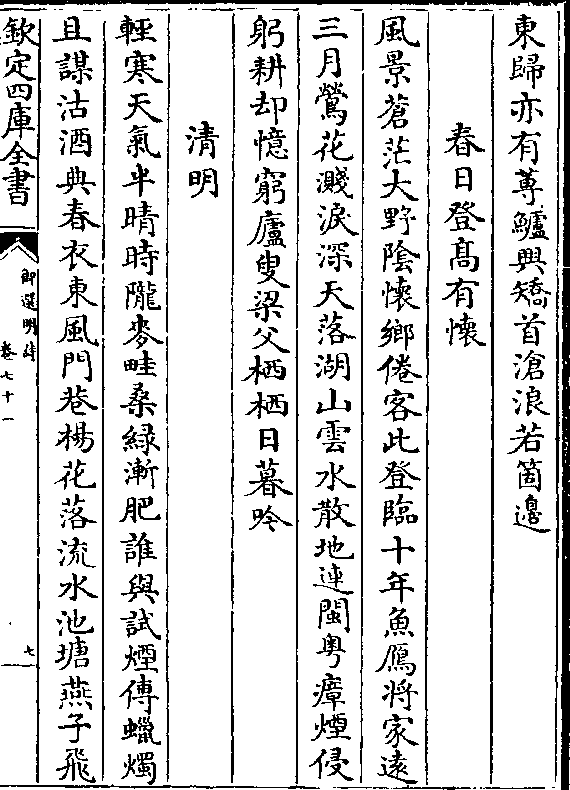 東歸亦有蓴鱸興矯首滄浪若箇邊
春日登髙有懐
風景蒼茫大野隂懐鄉倦客此登臨十年魚鴈将家逺
三月鶯花濺淚深天落湖山雲水散地連閩粤瘴煙侵
躬耕却憶窮廬叟梁父栖栖日暮吟
清明
輕寒天氣半晴時隴麥畦桑綠漸肥誰與試煙傳蠟燭
且謀沽酒典春衣東風門巷楊花落流水池塘燕子飛
欽定四庫全書
御選明詩
卷七十一
七